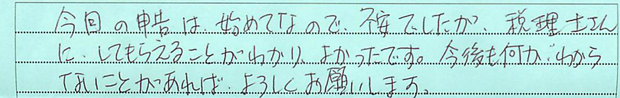 今回の申告は、始めてなので、不安でしたが、税理士さん
に、してもらえることがわかり、よかったです。今後も何か、わから
ないことがあれば、よろしくお願いします。